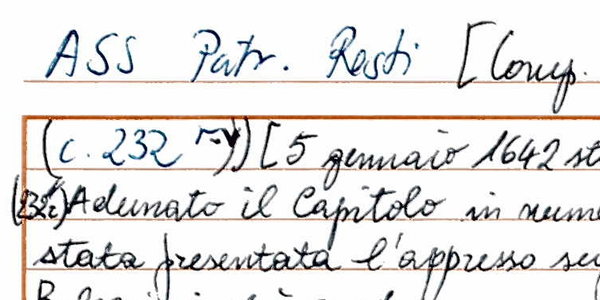 ASS Patr. Resti [Comp.
(c. 232 r-v)) [5 gennaio 1642 st
(232r) Adunato il Capitolo in nume
stata presentata l'appresso